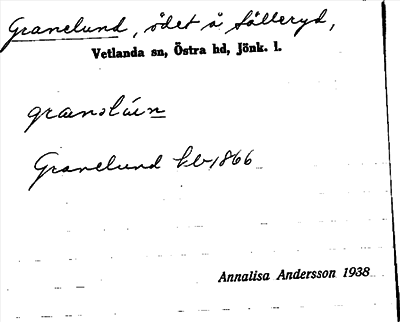 Granelund, ödet å Sålleryd,
Vetlanda sn, Östra hd, Jönk. l.
Granelund kb 1866
Annalisa Andersson 1938